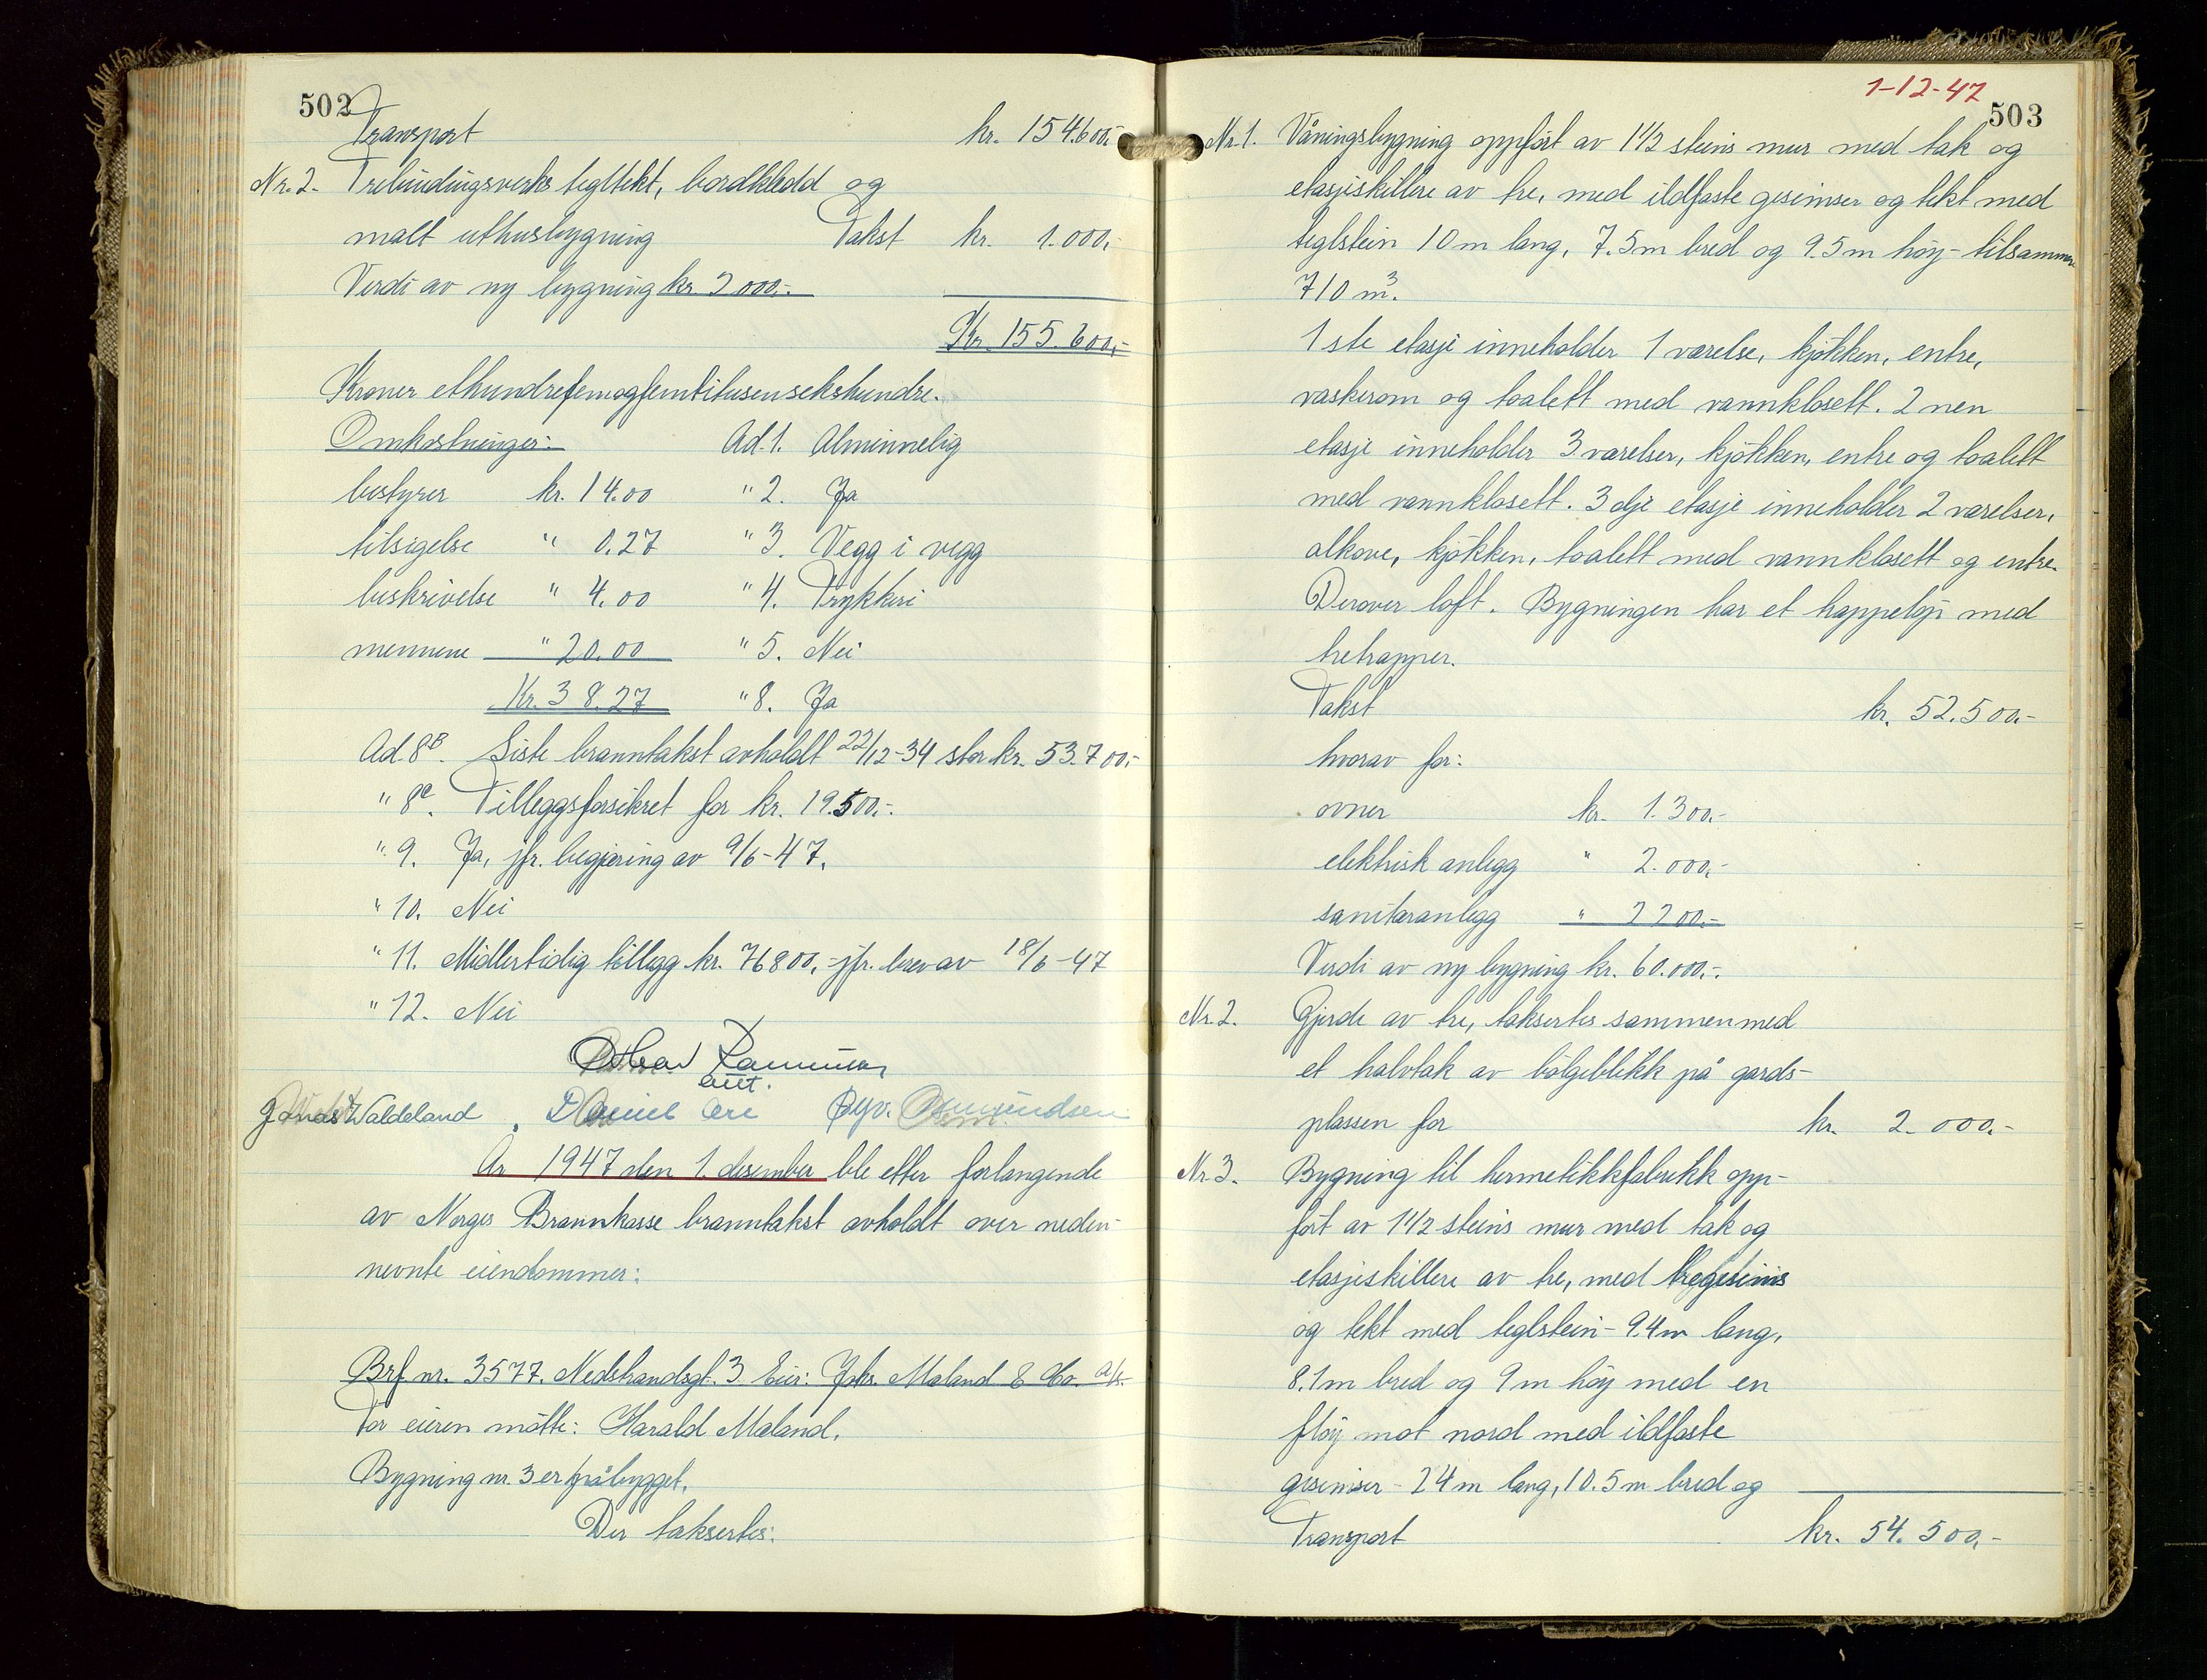 502
Transport kr. 154.600,-
Nr. 2. Trebindingsverks tegltekt, bordkledd og
malt uthusbygning Takst kr. 1.000,-
Verdi av ny bygning kr. 2.000,-
Kr. 155.600,-
Kroner ethundrefemogfemtitusensekshundre.
Omkostninger: Ad. 1. Alminnelig
bestyrer kr. 14.00 " 2. Ja
tilsigelse " 0.27 " 3. Vegg i vegg
beskrivelse " 4.00 " 4. Trykkeri
mennene " 20.00 " 5. Nei
Kr. 38.27 " 8. Ja
Ad. 8B. Siste branntakst avholdt 22/12-34 stor kr. 53.700,-
" 8c. Tilleggsforsikret for kr. 19.500,-.
" 9. Ja, jfr. begjæring av 9/6-47.
" 10. Nei
" 11. Midlertidig tillegg kr. 76800,- jfr. brev av 18/6-47
" 12. Nei
Jonas Waldeland
År 1947 den 1. desember ble etter forlangende
av Norges Brannkasse branntakst avholdt over neden-
nevnte eiendommer:
Brf nr. 3577. Nedstrandsgt. 3 Eier: Johs. Maland & Co. A/s.
For eieren møtte: Harald Maland.
Bygning nr. 3 er påbygget.
Der taksertes:
1-12-47
503
Nr. 1. Våningsbygning oppført av 1 1/2 steins mur med tak og
etasjeskillere av tre, med ildfaste gesimser og tekt med
teglstein 10 m lang, 7.5 m bred og 9.5 m høy - tilsammen
710 m³.
1ste etasje inneholder 1 værelse, kjøkken, entre,
vaskerom og toalett med vannklosett. 2nen
etasje inneholder 3 værelser, kjøkken, entre og toalett
med vannklosett. 3dje etasje inneholder 2 værelser,
alkove, kjøkken, toalett med vannklosett og entre.
Derover loft. Bygningen har et trappeløp med
tretrapper.
Takst kr. 52.500,-
hvorav for:
ovner kr. 1.300,-
elektrisk anlegg " 2.000,-
sanitæranlegg " 2200,-
Verdi av ny bygning kr. 60.000,-.
Nr. 2. Gjerde av tre, taksertes sammen med
et halvtak av bølgeblikk på gards-
plassen for kr. 2.000,-
Nr. 3. Bygning til hermetikkfabrikk opp-
ført av 1 1/2 steins mur med tak og
etasjeskillere av tre, med tregesims
og tekt med teglstein - 9.4 m lang,
8.1 m bred og 9 m høy med en
fløy mot nord med ildfaste
gesimser - 24 m lang, 10.5 m bred og
Transport kr. 54.500,-